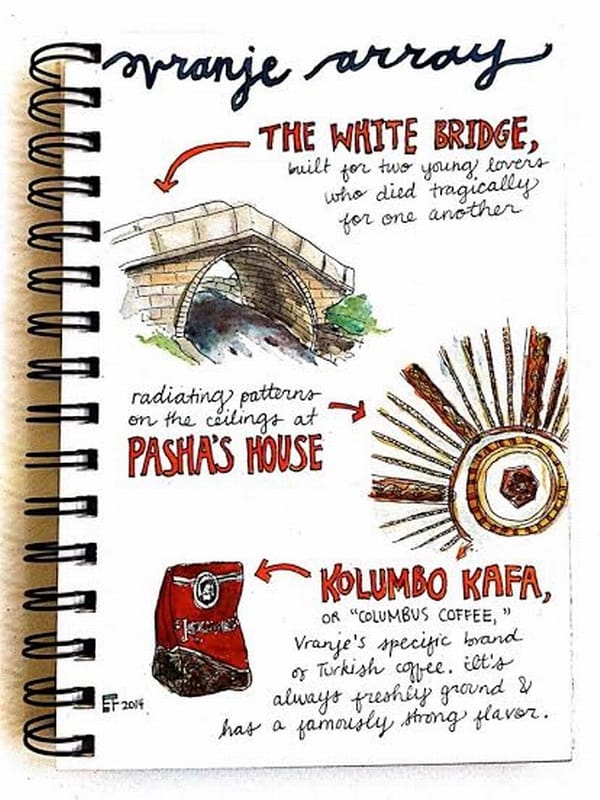 vranje array
THE WHITE BRIDGE,
built for two young lovers
who died tragically
for one another
radiating patterns
on the ceilings at
PASHA'S HOUSE
KOLUMBO KAFA,
OR "COLUMBUS COFFEE,"
Vranje's specific brand
of Turkish coffee. It's
always freshly ground &
has a famously strong flavor.
EF 2014